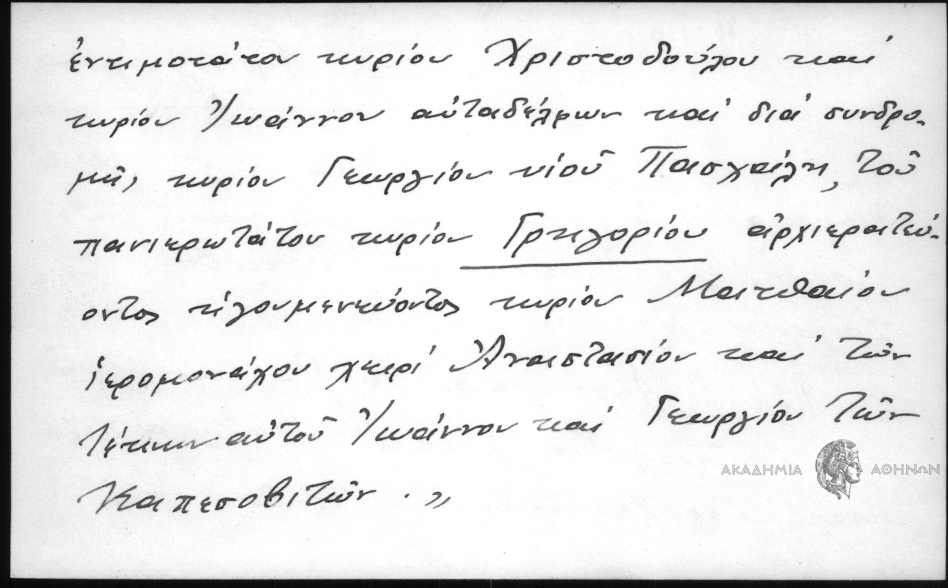 ἐντιμοτάτου κυρίου Χριστοδούλου καί
κυρίου Ἰωάννου αὐταδέλφων καί διά συνδρο-
μῆς κυρίου Γεωργίου υἱοῦ Πασχάλη, τοῦ
πανιερωτάτου κυρίου Γρηγορίου ἀρχιερατεύ-
οντος ἡγουμενεύοντος κυρίου Ματθαίου
ἱερομονάχου χειρί Ἀναστασίου καί τῶν
τέκνων αὐτοῦ Ἰωάννου καί Γεωργίου τῶν
Καπεσοβιτῶν . „
ΑΚΑΔΗΜΙΑ ΑΘΗΝΩΝ